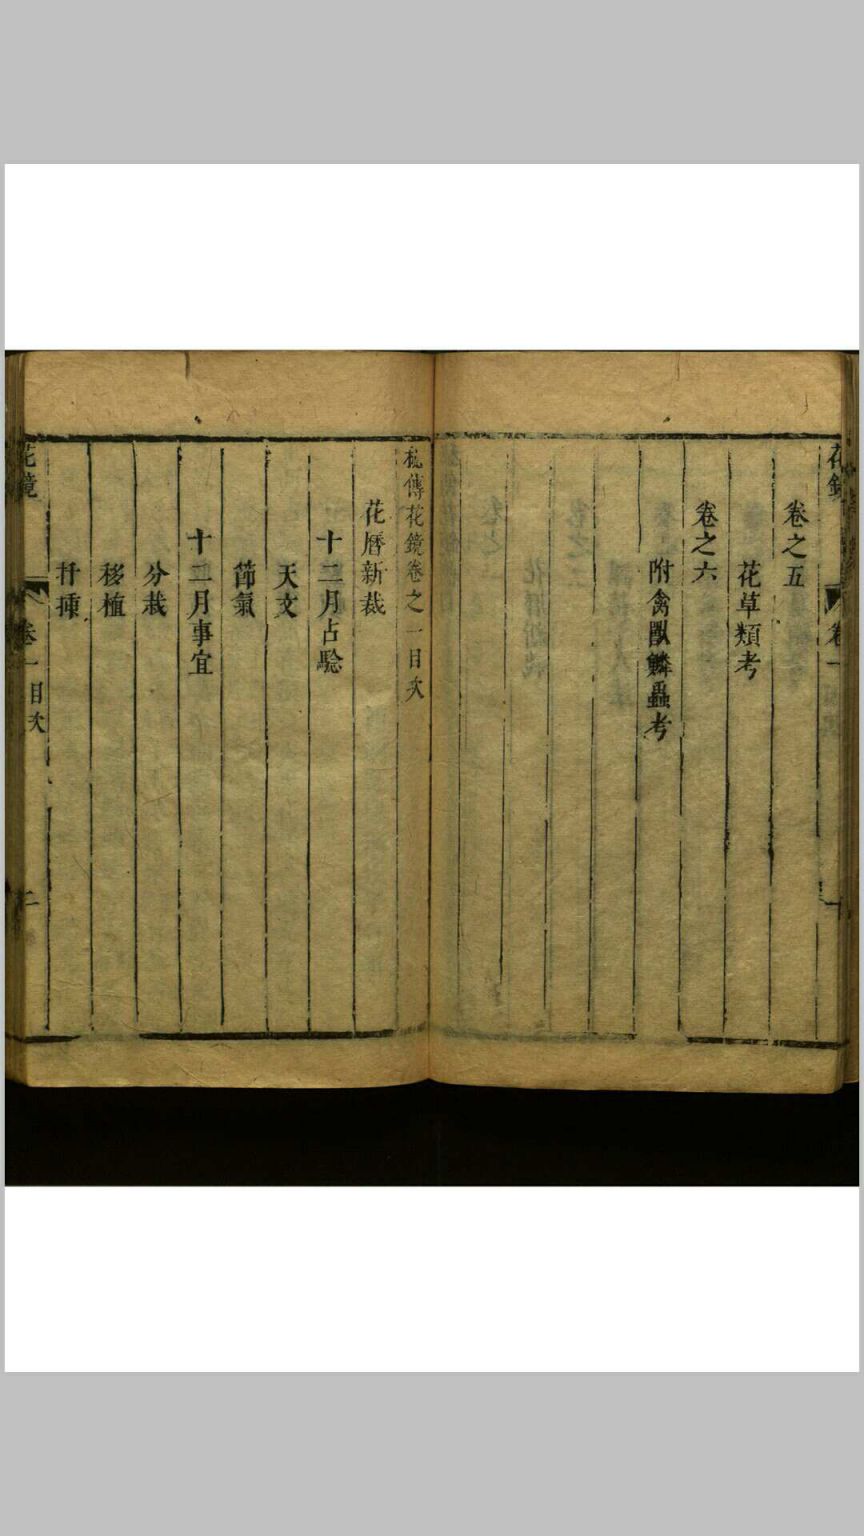 花鏡 卷一 一
卷之五
花草類考
卷之六
附禽獸鱗蟲考
秘傳花鏡卷之一目次
花曆新裁
十二月占驗
天文
節氣
十二月事宜
分栽
移植
扦插
花鏡 卷一目次 二